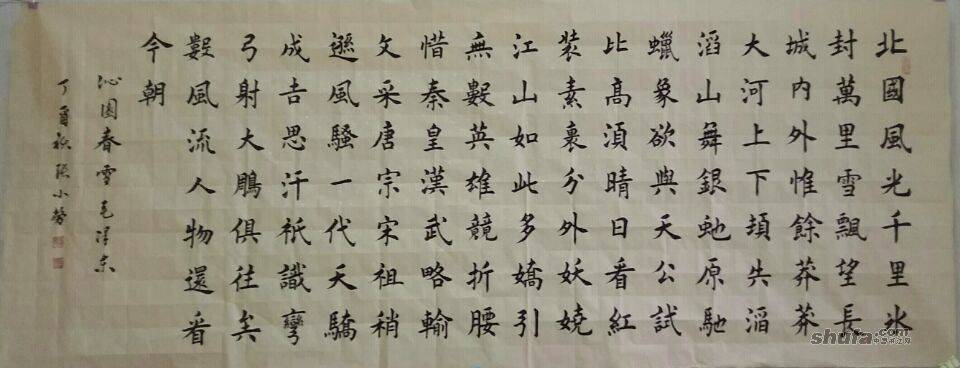 北國風光千里氷
封萬里雪飄望長
城内外惟餘莽莽
大河上下頓失滔
滔山舞銀虵原馳
蠟象欲與天公試
比高須晴日看紅
裝素裹分外妖嬈
江山如此多嬌引
無數英雄競折腰
惜秦皇漢武略輸
文采唐宗宋祖稍
遜風騷一代天驕
成吉思汗衹識彎
弓射大鵰俱往矣
數風流人物還看
今朝
沁園春雪毛澤东
丁酉秋張小
shufa.com